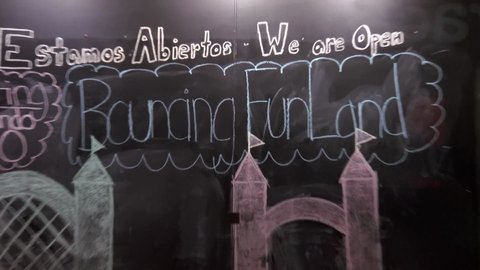 Estamos Abiertos - We are Open
Bouncing Fun Land